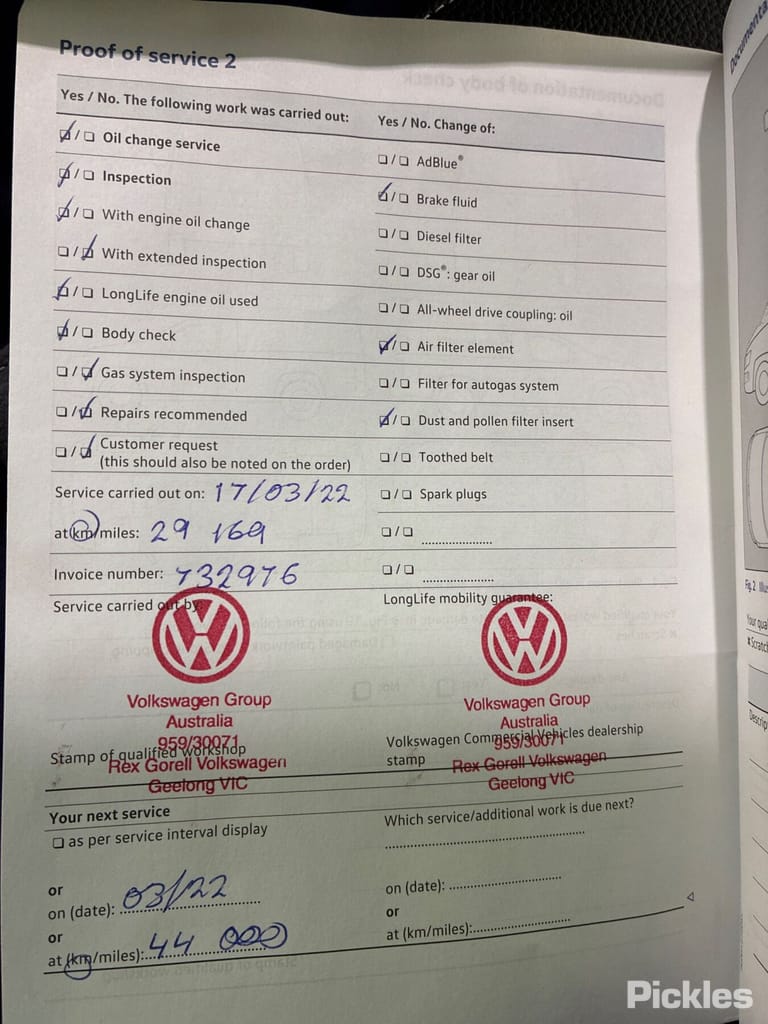 Proof of service 2
Yes / No. The following work was carried out:
☑/☐ Oil change service
☑/☐ Inspection
☑/☐ With engine oil change
☐/☑ With extended inspection
☑/☐ LongLife engine oil used
☑/☐ Body check
☐/☑ Gas system inspection
☐/☑ Repairs recommended
☐/☑ Customer request
(this should also be noted on the order)
Service carried out on: 17/03/22
at km/miles: 29 169
Invoice number: 732976
Service carried out by:
Volkswagen Group
Australia
959/30071
Stamp of qualified workshop
Rex Gorell Volkswagen
Geelong VIC
Yes / No. Change of:
☐/☐ AdBlue®
☑/☐ Brake fluid
☐/☐ Diesel filter
☐/☐ DSG®: gear oil
☐/☐ All-wheel drive coupling: oil
☑/☐ Air filter element
☐/☐ Filter for autogas system
☑/☐ Dust and pollen filter insert
☐/☐ Toothed belt
☐/☐ Spark plugs
☐/☐ ....................
☐/☐ ....................
LongLife mobility guarantee:
Volkswagen Group
Australia
959/30071
Volkswagen Commercial Vehicles dealership
stamp
Rex Gorell Volkswagen
Geelong VIC
Your next service
☐ as per service interval display
or
on (date): 03/22
or
at (km/miles): 44 000
Which service/additional work is due next?
on (date):
or
at (km/miles):
Fig. 2
Pickles